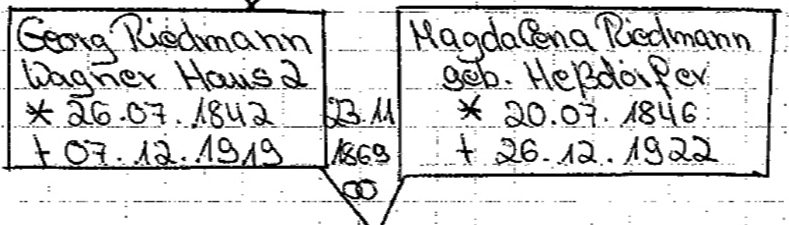 Georg Riedmann
Wagner Haus 2
* 26.07.1842
+ 07.12.1919
23.11
1869
∞
Magdalena Riedmann
geb. Heßdörfer
* 20.07.1846
+ 26.12.1922